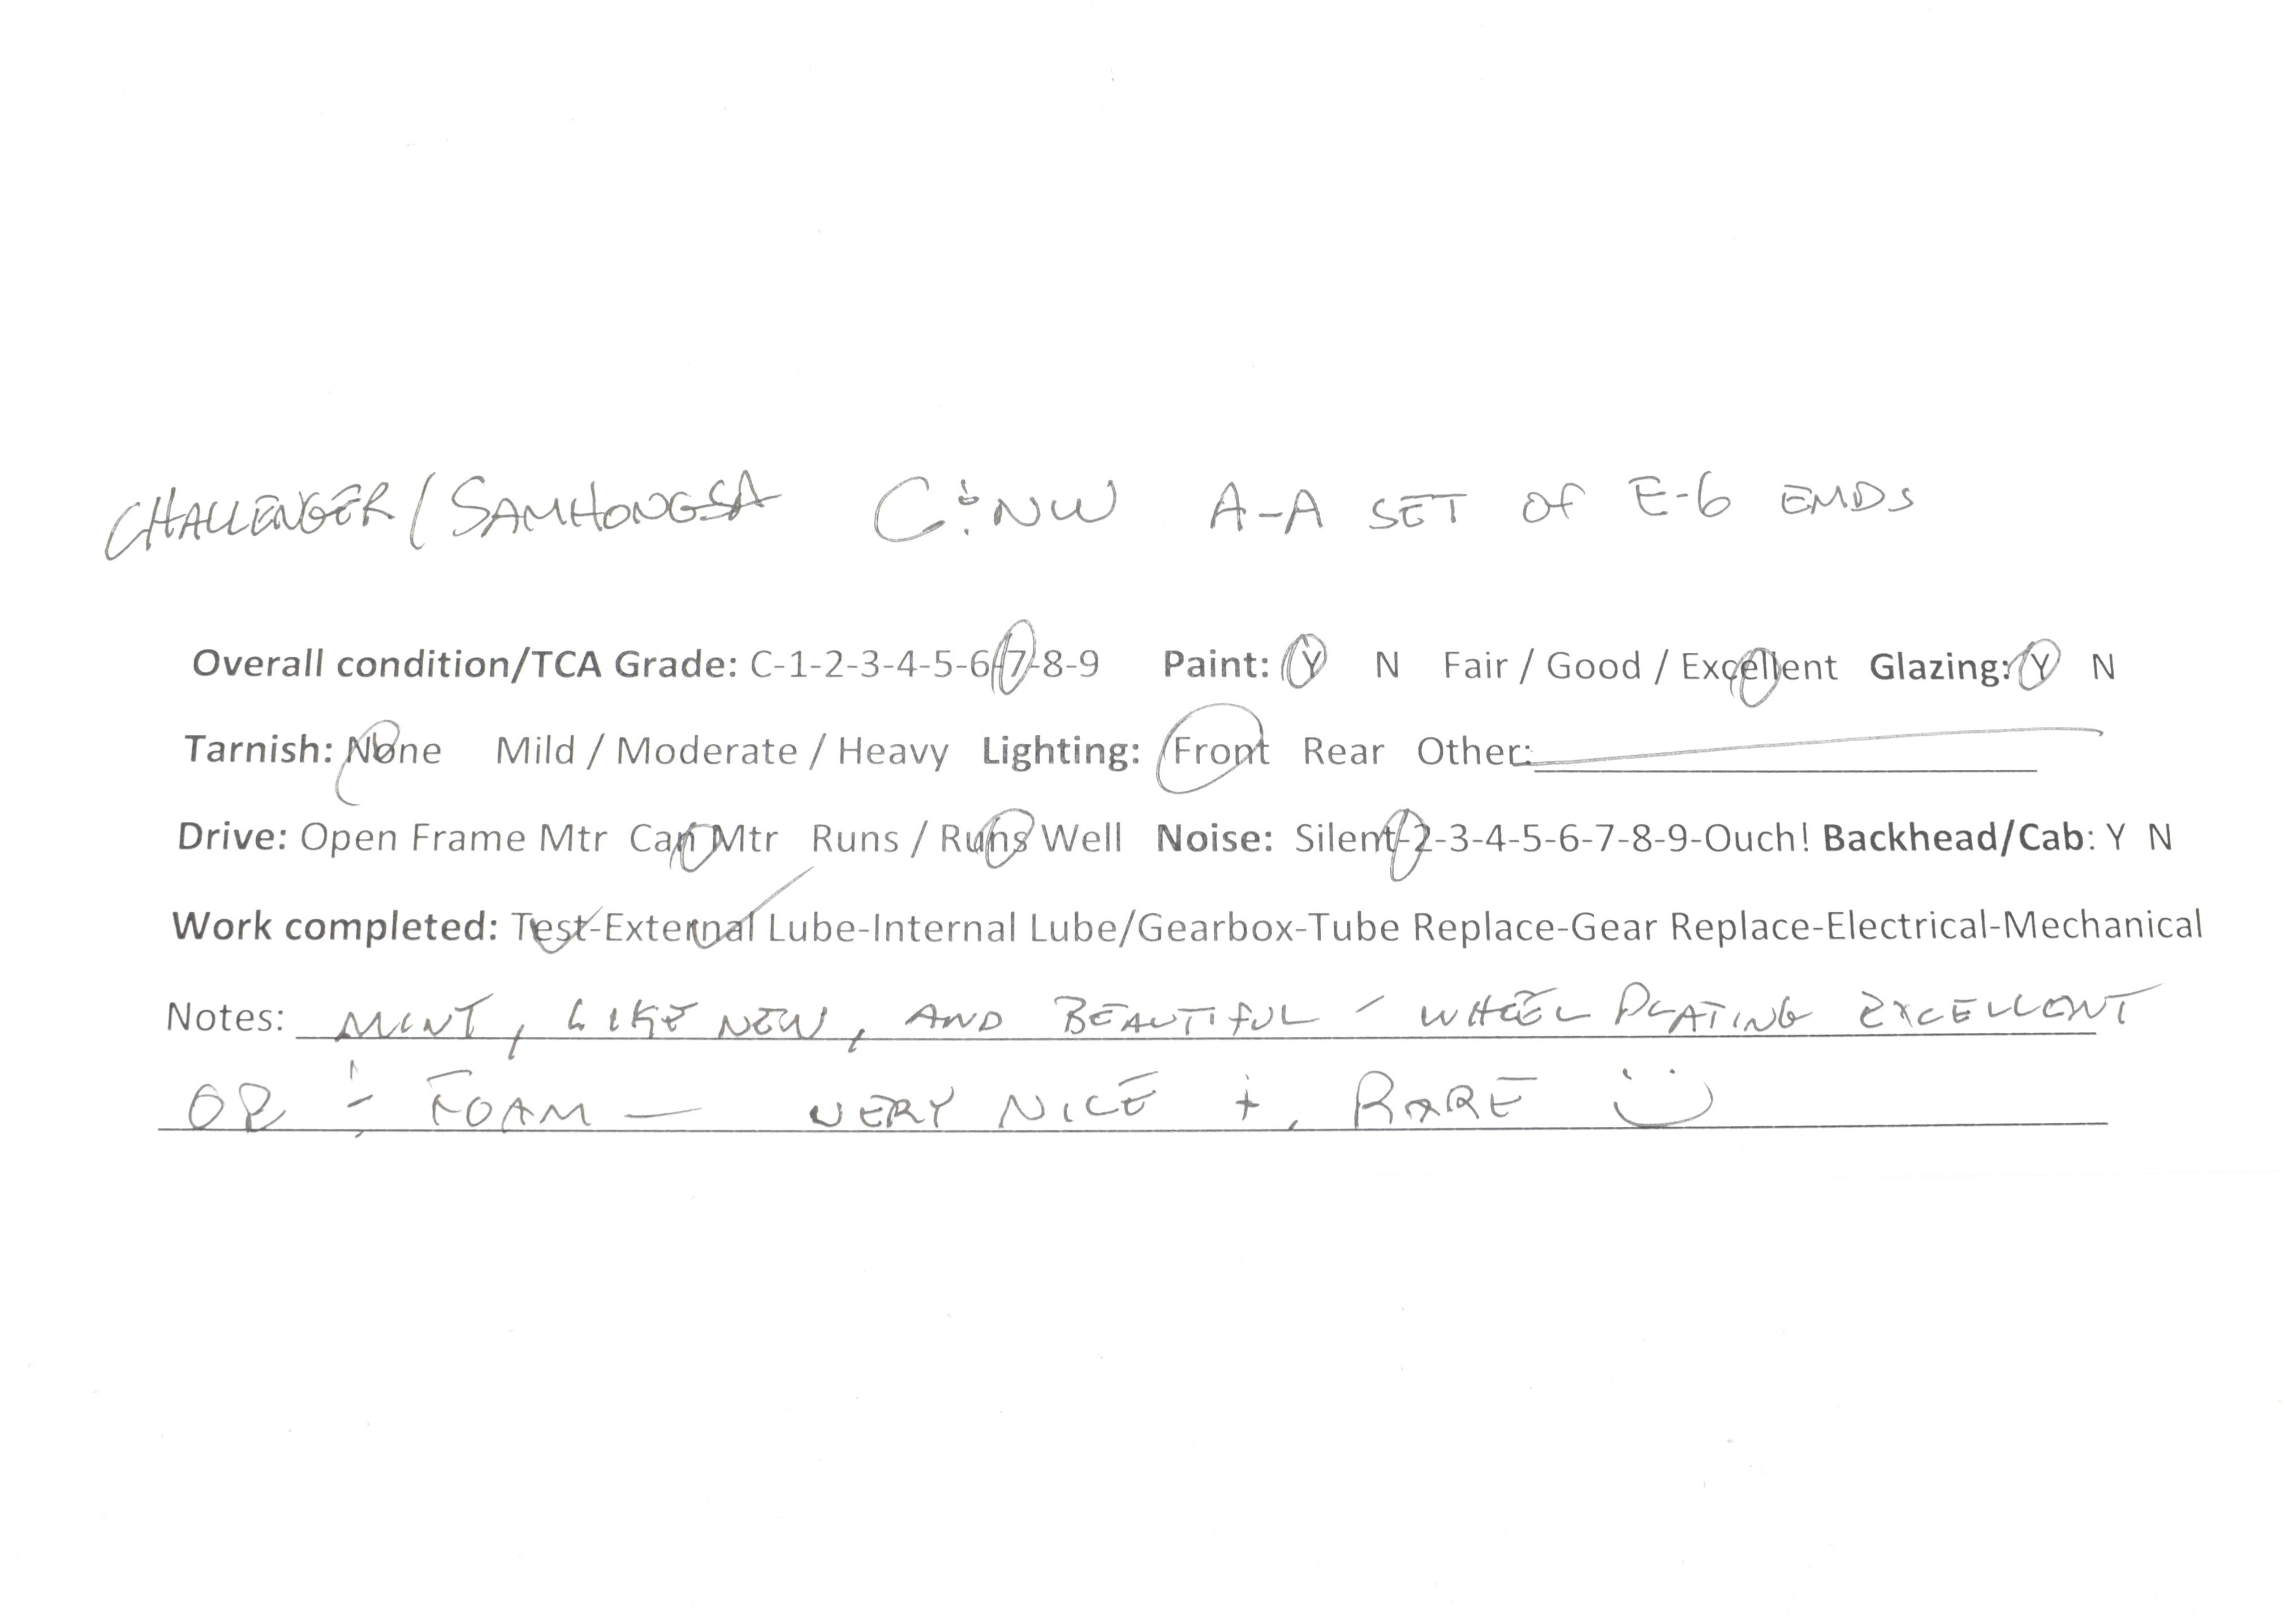 CHALLENGER / SAMHONGSA C & NW A-A SET OF E-6 EMDS
Overall condition/TCA Grade: C-1-2-3-4-5-6-7-8-9 Paint: Y N Fair / Good / Excellent Glazing: Y N
Tarnish: None Mild / Moderate / Heavy Lighting: Front Rear Other:
Drive: Open Frame Mtr Can Mtr Runs / Runs Well Noise: Silent-2-3-4-5-6-7-8-9-Ouch! Backhead/Cab: Y N
Work completed: Test-External Lube-Internal Lube/Gearbox-Tube Replace-Gear Replace-Electrical-Mechanical
Notes: MINT, LIKE NEW, AND BEAUTIFUL - WHEEL PLATING EXCELLENT
OB & FOAM — VERY NICE +, RARE :)